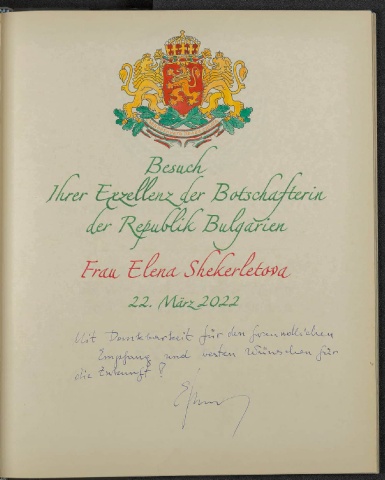 Besuch
Ihrer Exzellenz der Botschafterin
der Republik Bulgarien
Frau Elena Shekerletova
22. März 2022
Mit Dankbarkeit für den freundlichen
Empfang und besten Wünschen für
die Zukunft!